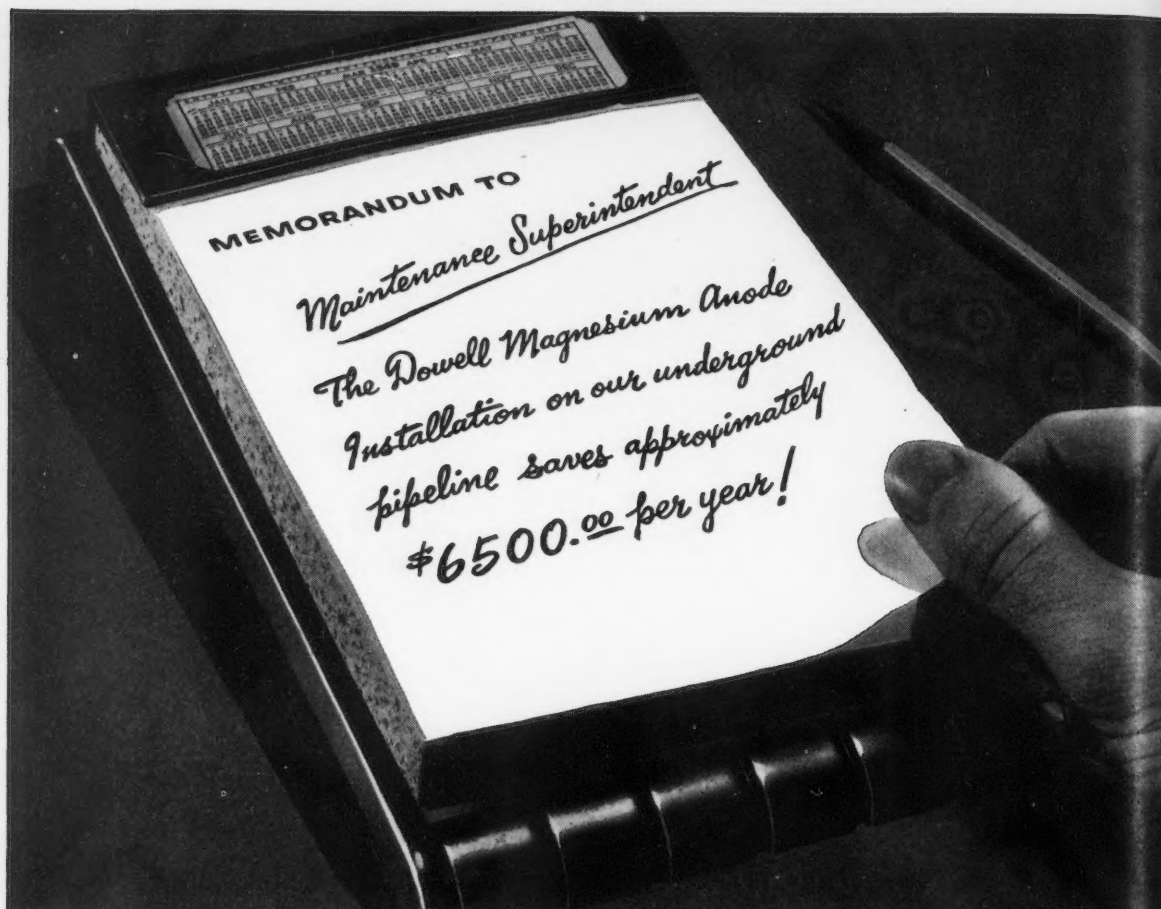 MEMORANDUM TO
Maintenance Superintendent
The Dowell Magnesium Anode
Installation on our underground
pipeline saves approximately
$6500.00 per year!